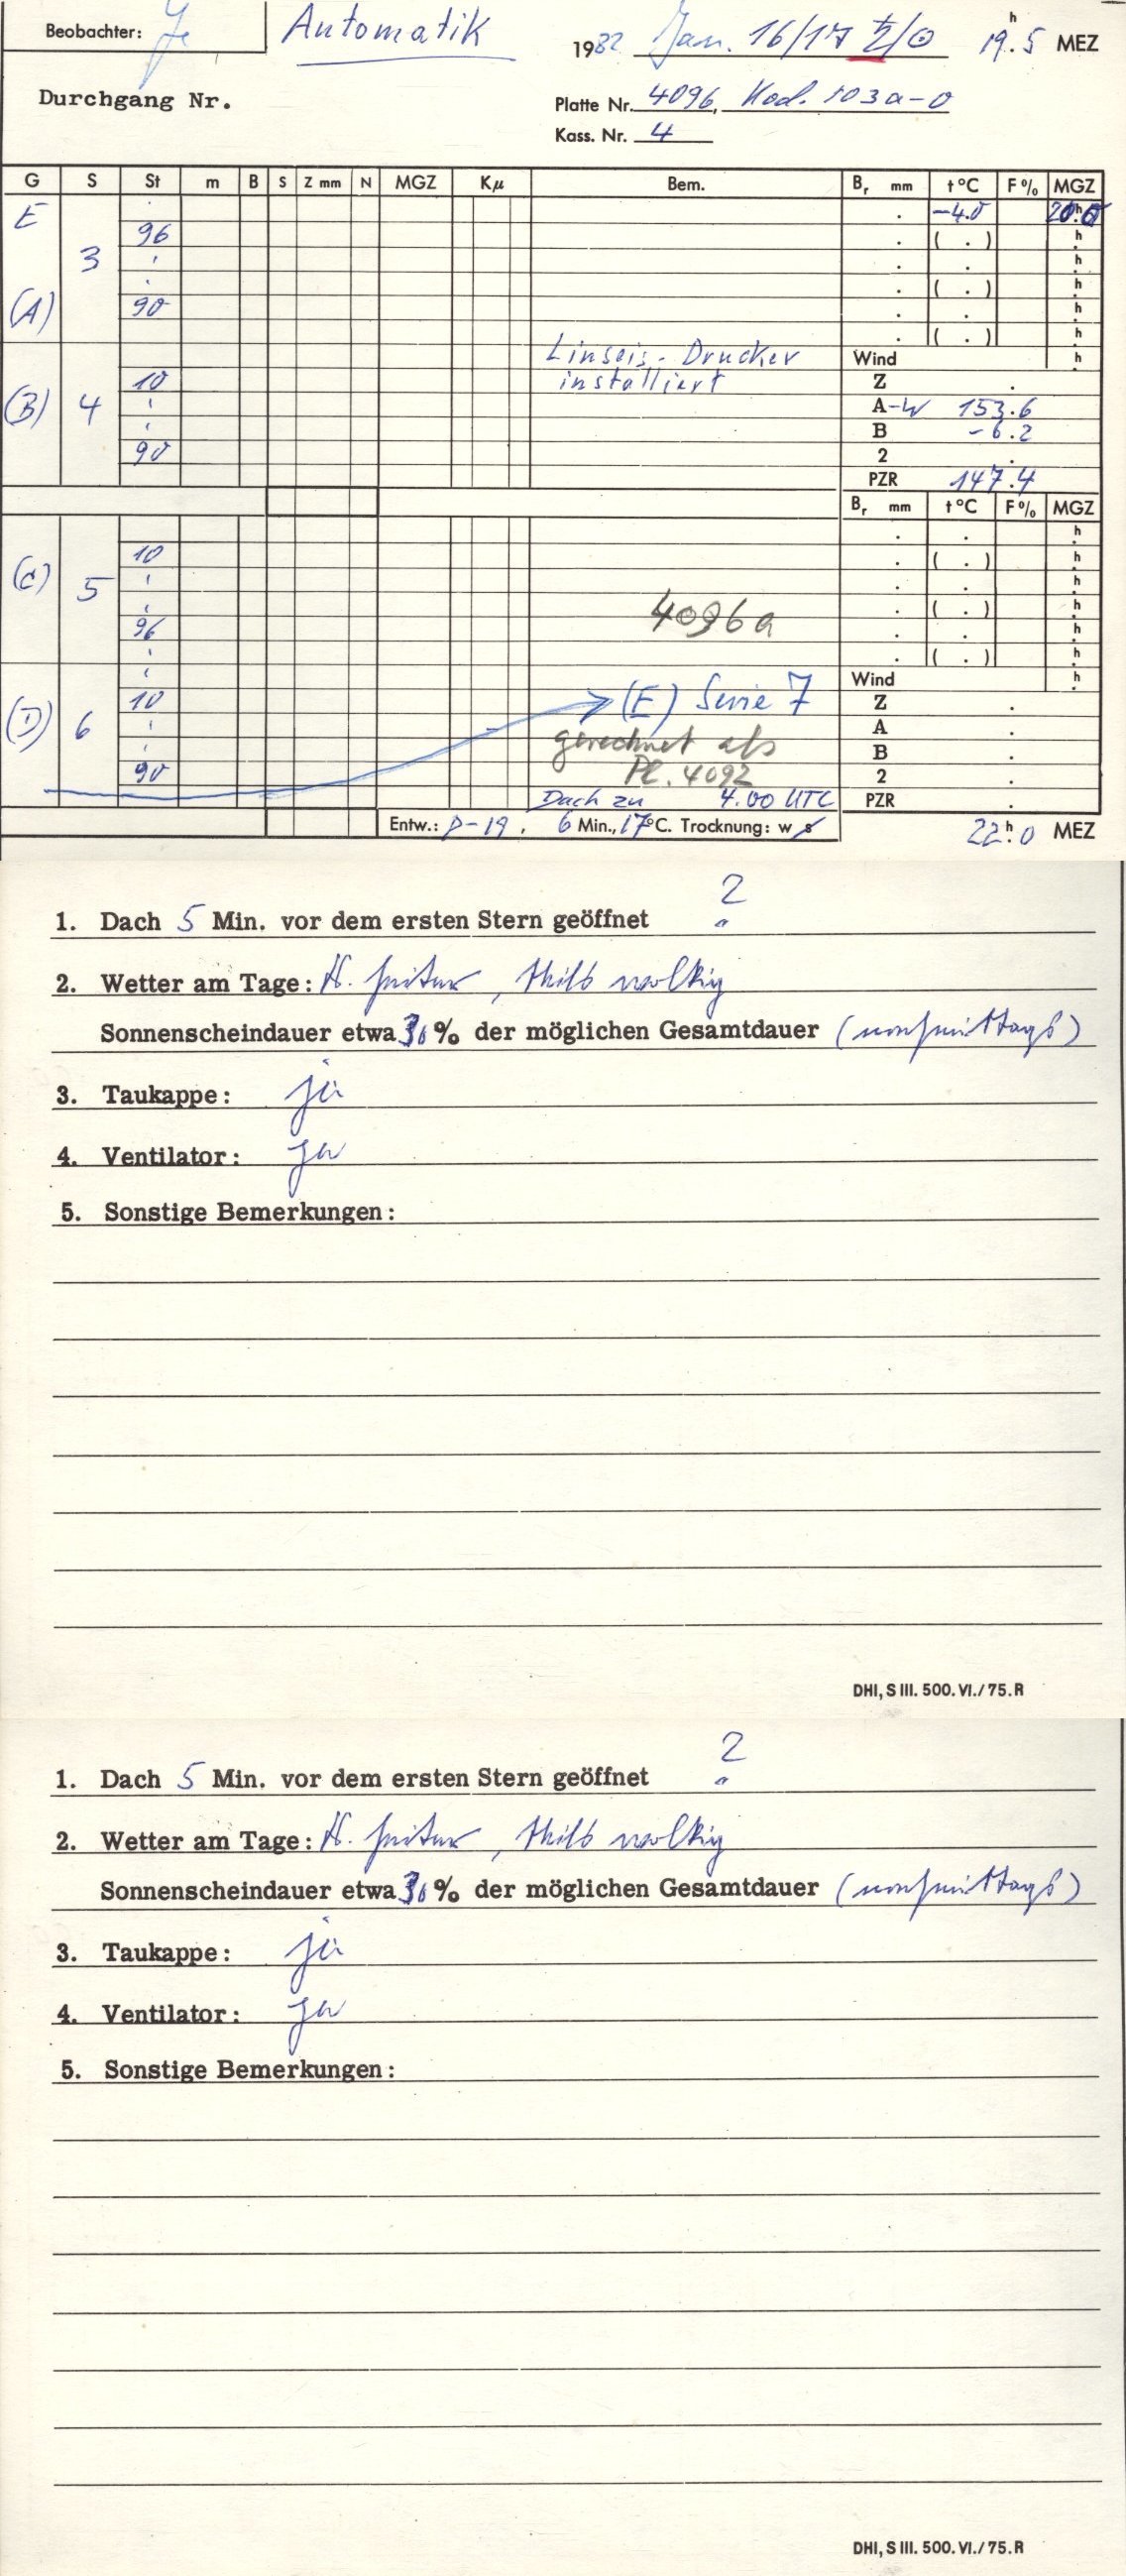 Beobachter: Je Automatik 1982 Jan. 16/17 ♄/☉ 19h.5 MEZ
Durchgang Nr. Platte Nr. 4096, Kod. 103a-O
Kass. Nr. 4
G S St m B S Z mm N MGZ Kμ Bem. Br mm t°C F% MGZ
E -4.0 h
96 ( . ) h
3 h
( . ) h
(A) 90 h
Linseis-Drucker ( . ) h
installiert Wind h
10 Z
(B) 4 A-W 153.6
B -6.2
90 2
PZR 147.4
Br mm t°C F% MGZ
h
10 ( . ) h
(C) 5 h
4096a ( . ) h
96 h
( . ) h
Wind h
10 (E) Serie 7 Z
(D) 6 gerechnet als A
Pl. 4092 B
90 2
Dach zu 4.00 UTC PZR
Entw.: D-19, 6 Min., 17°C. Trocknung: w s 22h.0 MEZ
1. Dach 5 Min. vor dem ersten Stern geöffnet ?
2. Wetter am Tage: heiter, teils wolkig
Sonnenscheindauer etwa 30% der möglichen Gesamtdauer (nachmittags)
3. Taukappe: ja
4. Ventilator: ja
5. Sonstige Bemerkungen:
DHI, S III. 500. VI./75. R
1. Dach 5 Min. vor dem ersten Stern geöffnet ?
2. Wetter am Tage: heiter, teils wolkig
Sonnenscheindauer etwa 30% der möglichen Gesamtdauer (nachmittags)
3. Taukappe: ja
4. Ventilator: ja
5. Sonstige Bemerkungen:
DHI, S III. 500. VI./75. R